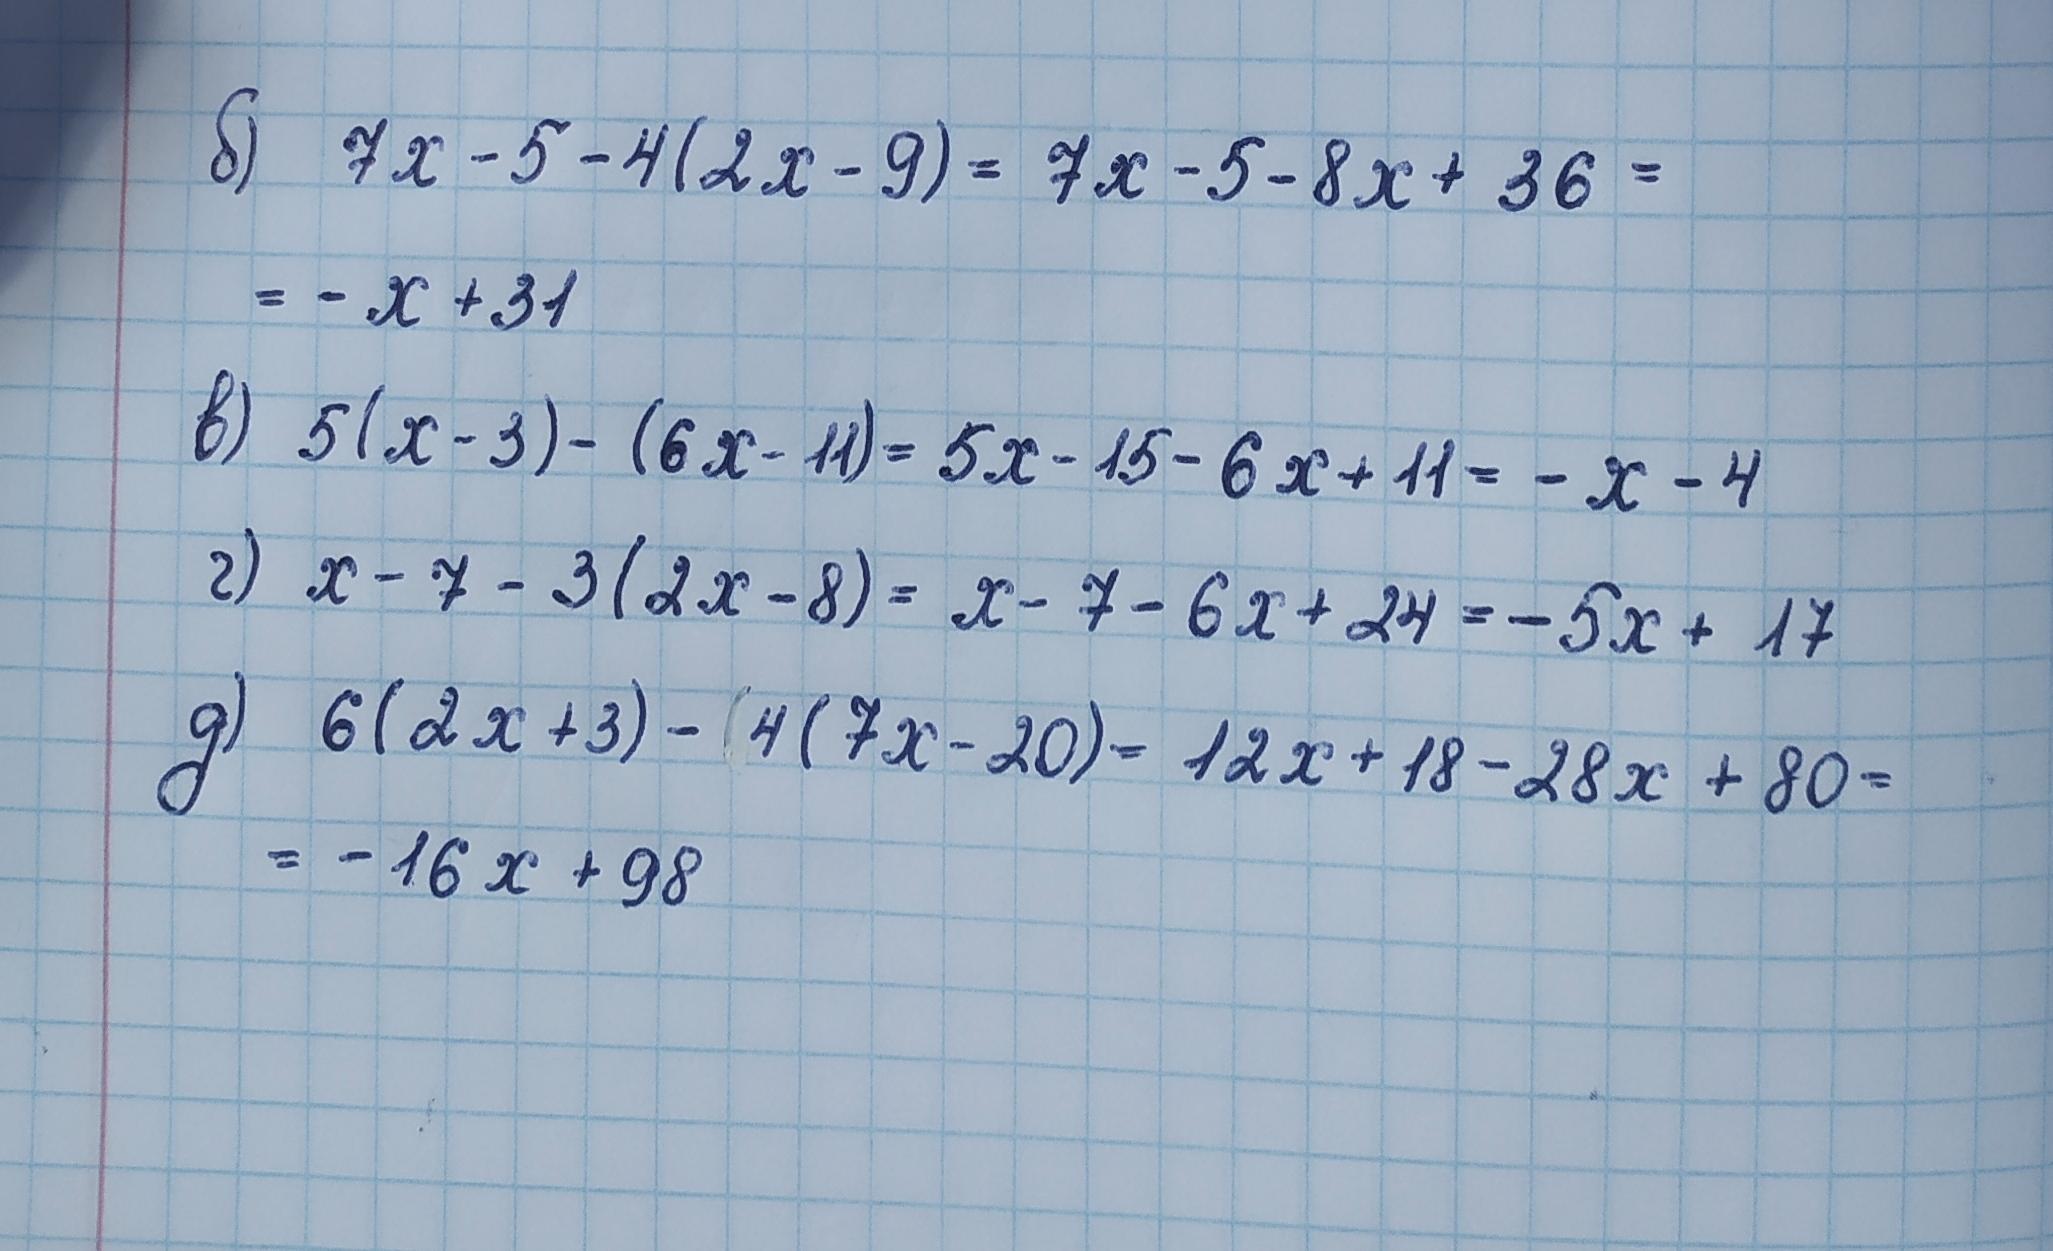 б) 7x - 5 - 4(2x - 9) = 7x - 5 - 8x + 36 =
= - x + 31
в) 5(x - 3) - (6x - 11) = 5x - 15 - 6x + 11 = - x - 4
г) x - 7 - 3(2x - 8) = x - 7 - 6x + 24 = - 5x + 17
д) 6(2x + 3) - 4(7x - 20) = 12x + 18 - 28x + 80 =
= - 16x + 98